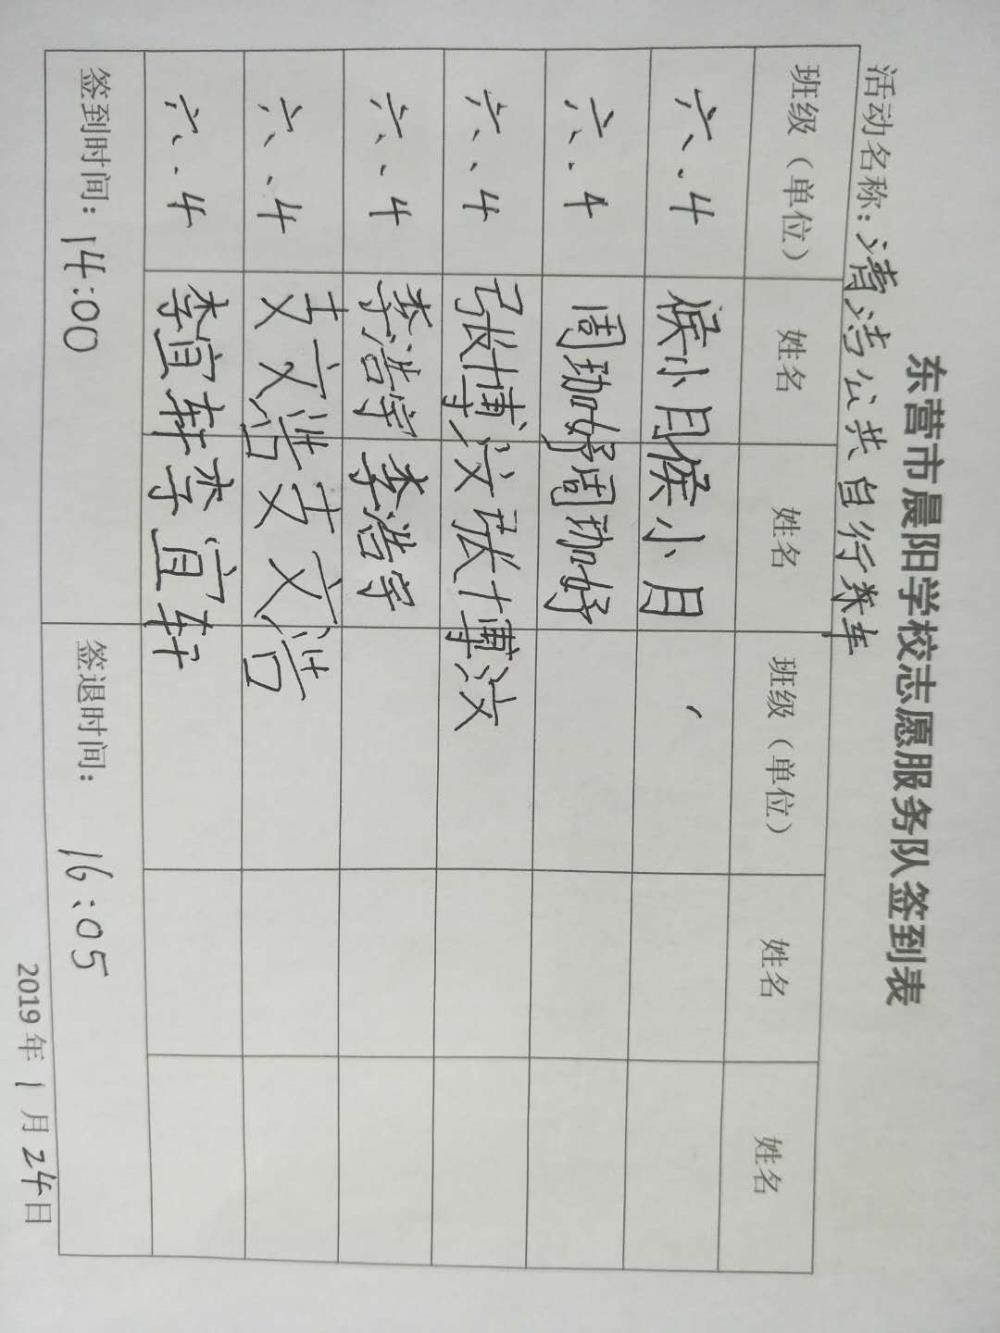 东营市晨阳学校志愿服务队签到表
活动名称：清洁公共自行车
班级（单位） 姓名 姓名 班级（单位） 姓名 姓名
六.4 侯小月 侯小月
六.4 周珈妤 周珈妤
六、4 张博文 张博汶
六、4 李浩宇 李浩宇
六、4 支文浩 支文浩
六.4 李宜轩 李宜轩
签到时间：14:00 签退时间：16:05
2019年1月24日